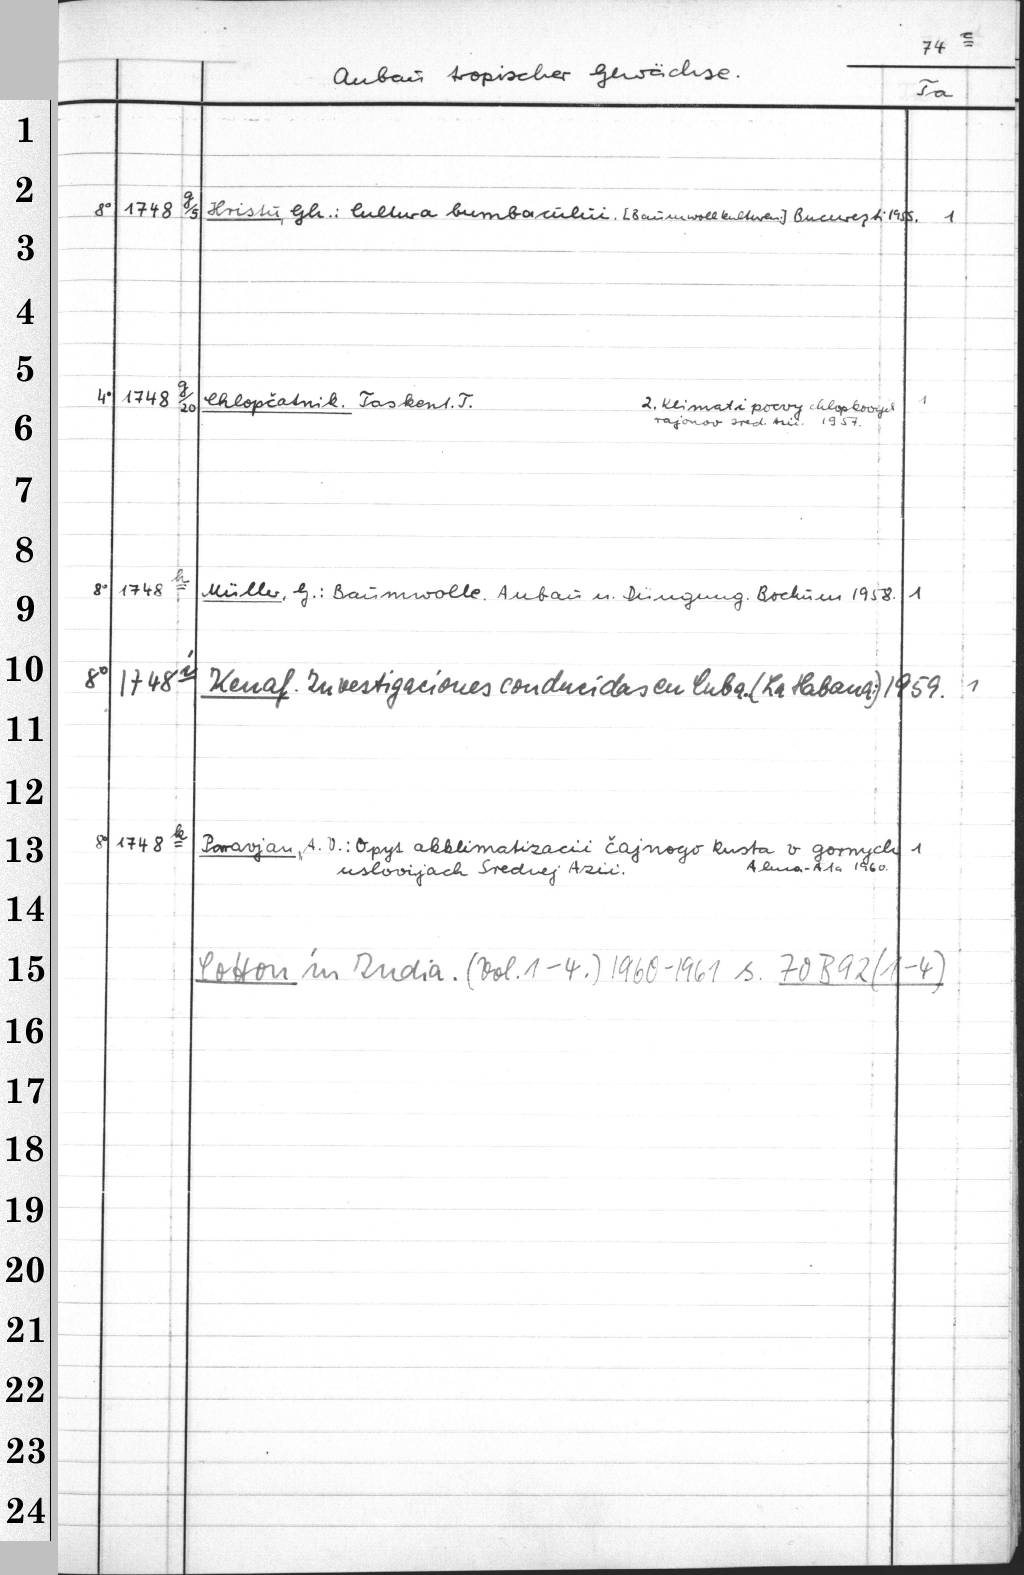 74 c
Anbau tropischer Gewächse.
Ta
1
2
8° 1748 g/5 Hristu, Gh.: Cultura bumbacului. [Baumwollkulturen] București 1955. 1
3
4
5
4° 1748 g/20 Chlopčatnik. Taskent. T. 2. Klimat i počvy chlopkovych 1
rajonov sred. Azii. 1957.
6
7
8
8° 1748 h Müller, G.: Baumwolle. Anbau u. Düngung. Bochum 1958. 1
9
10
8° 1748 i Kenaf. Investigaciones conducidas en Cuba. (La Habana:) 1959. 1
11
12
13
8° 1748 k A. V.: Opyt akklimatizacii čajnogo kusta v gornych 1
uslovijach Srednej Azii. Alma-Ata 1960.
14
15
Cotton in India. (Vol. 1-4.) 1960-1961 s. 70 B 92 (1-4)
16
17
18
19
20
21
22
23
24